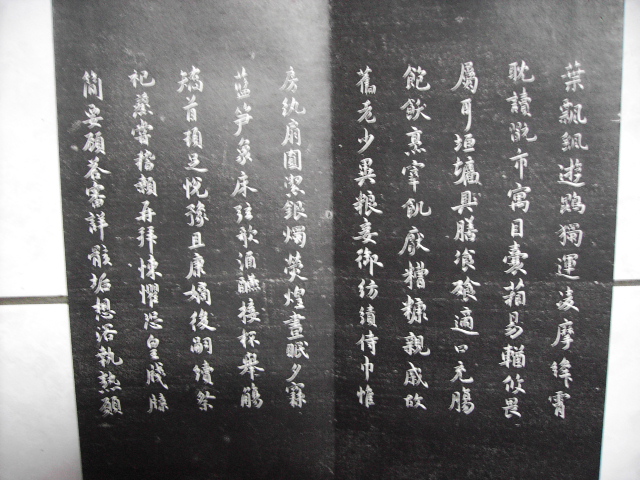 葉飄颻遊鵾獨運凌摩絳霄
耽讀翫市寓目囊葙易輶攸畏
屬耳垣墻具膳飡飰適口充腸
飽飫烹宰飢厭糟糠親戚故
舊老少異粮妾御紡績侍巾帷
房紈扇圓潔銀燭煒煌晝眠夕寐
藍笋象床弦歌酒讌接杯舉觴
矯首頓足悅豫且康嫡後嗣續祭
祀蒸嘗稽顙再拜悚懼恐皇牋牒
簡要顧荅審詳骸垢想浴執熱願